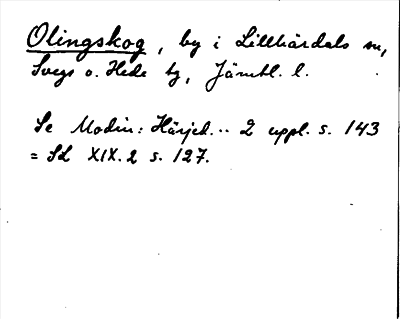 Olingskog, by i Lillhärdals sn,
Svegs o. Hede tg, Jämtl. l.
Se Modin: Härjed... 2 uppl. s. 143
= SL XIX.2 s. 127.